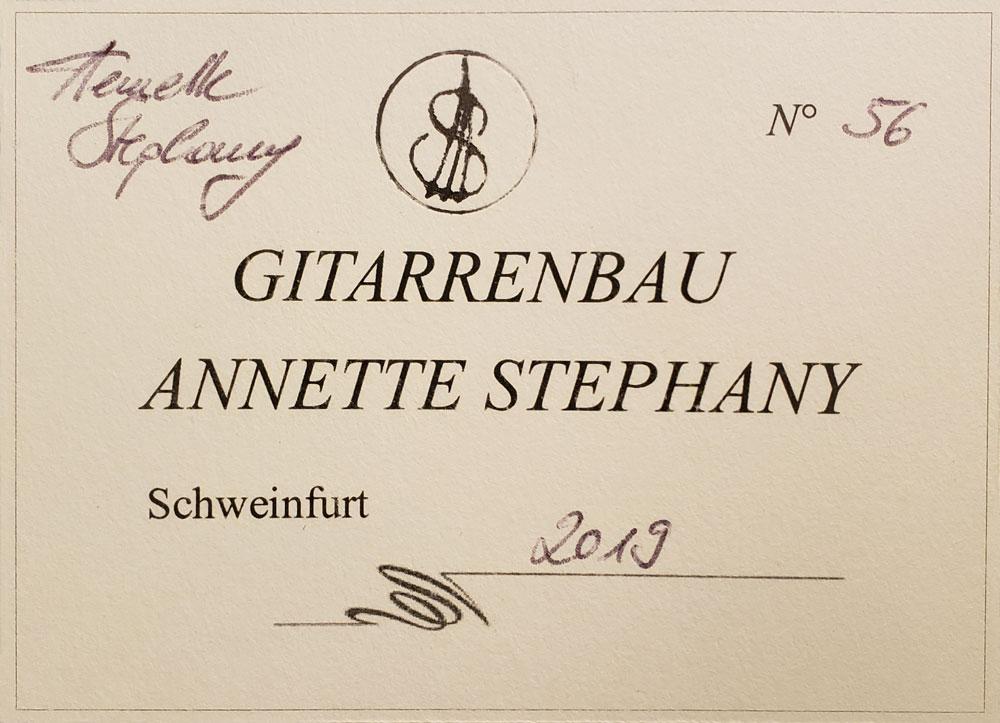 Annette
Stephany
N° 56
GITARRENBAU
ANNETTE STEPHANY
Schweinfurt
2019